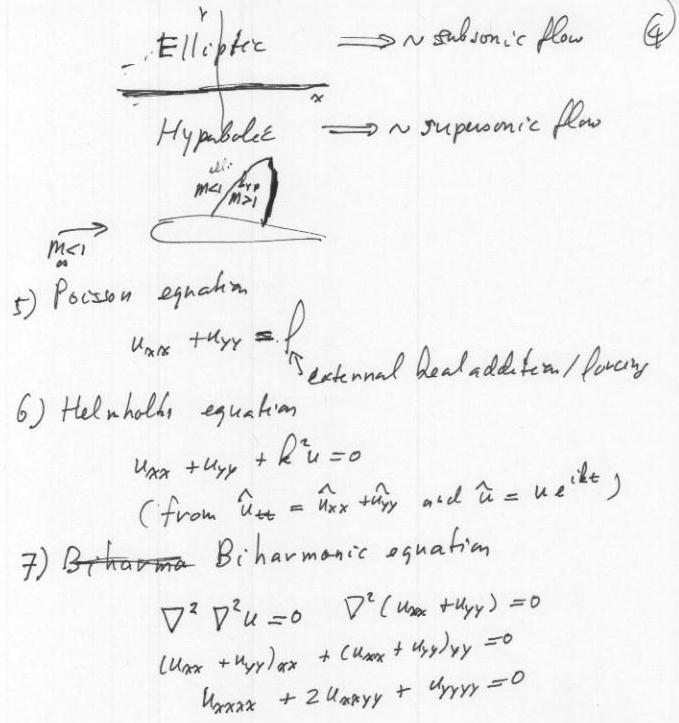 Elliptic ⟹ ~ subsonic flow ④
y
x
Hyperbolic ⟹ ~ supersonic flow
ell.
M<1 hyp M>1
M∞<1
5) Poisson equation
u_xx + u_yy = f
external heat addition / forcing
6) Helmholtz equation
u_xx + u_yy + k²u = 0
(from û_tt = û_xx + û_yy and û = u e^{ikt})
7) Biharmonic equation
∇² ∇² u = 0 ∇² (u_xx + u_yy) = 0
(u_xx + u_yy)_xx + (u_xx + u_yy)_yy = 0
u_xxxx + 2 u_xxyy + u_yyyy = 0